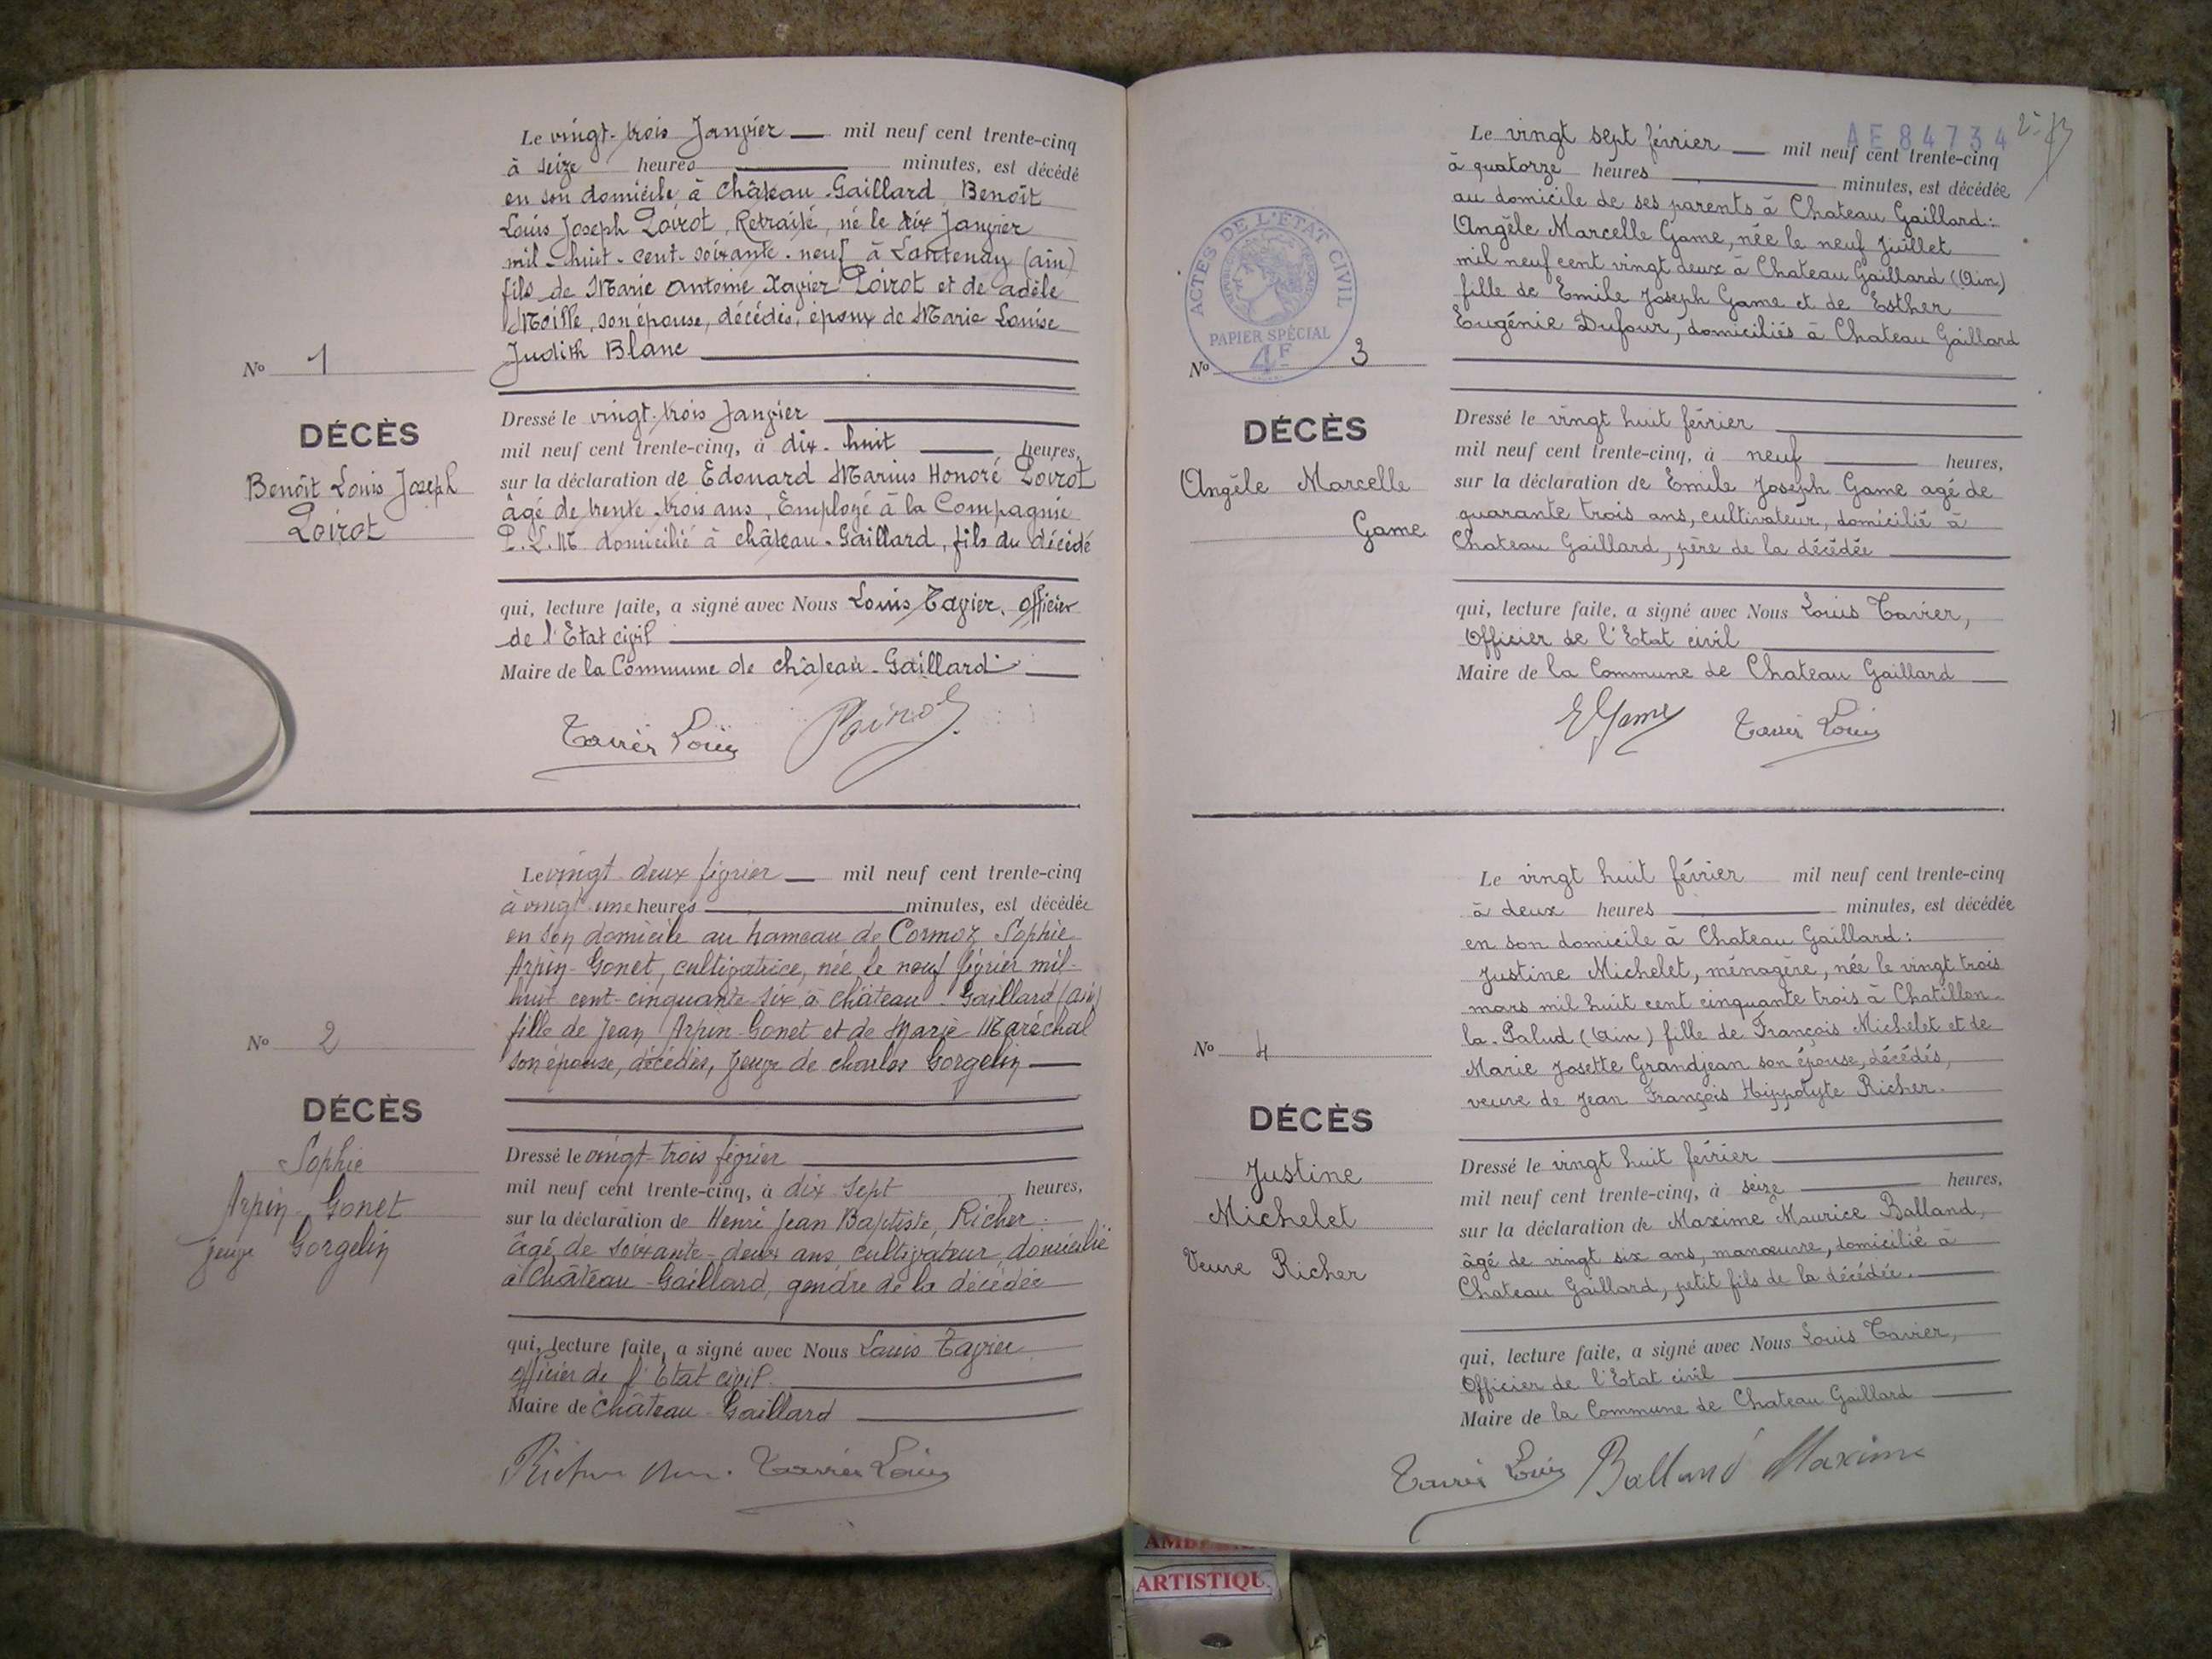 Le vingt-trois Janvier — mil neuf cent trente-cinq
à seize heures — minutes, est décédé
en son domicile à Château-Gaillard, Benoît
Louis Joseph Poirot, Retraité, né le dix Janvier
mil-huit-cent-soixante-neuf à Lantenay (ain)
fils de Marie Antoine Xavier Poirot et de adèle
son épouse, décédés, époux de Marie Louise
Judith Blanc
No 1
DÉCÈS
Benoît Louis Joseph
Poirot
Dressé le vingt-trois Janvier
mil neuf cent trente-cinq, à dix-huit heures,
sur la déclaration de Edouard Marius Honoré Poirot
âgé de trente-trois ans, Employé à la Compagnie
P.L.M domicilié à château-Gaillard, fils du décédé
qui, lecture faite, a signé avec Nous Louis Tavier, officier
de l'Etat civil
Maire de la Commune de château-Gaillard
Tavier Louis Poirot
Le vingt deux février — mil neuf cent trente-cinq
à vingt-une heures — minutes, est décédée
en son domicile au hameau de Cormoz, Sophie
Arpin-Gonet, cultivatrice, née le neuf février mil-
huit cent-cinquante-six à château-Gaillard (ain)
fille de Jean Arpin-Gonet et de Marie Maréchal
son épouse, décédés, veuve de charles Gorgelin
No 2
DÉCÈS
Sophie
Arpin-Gonet
veuve Gorgelin
Dressé le vingt-trois février
mil neuf cent trente-cinq, à dix sept heures,
sur la déclaration de Henri Jean Baptiste Richer
âgé de soixante-deux ans, cultivateur, domicilié
à Château-Gaillard, gendre de la décédée
qui, lecture faite, a signé avec Nous Louis Tavier
officier de l'Etat civil.
Maire de château-Gaillard
Tavier Louis
AE 84734
Le vingt sept février — mil neuf cent trente-cinq
à quatorze heures — minutes, est décédée
au domicile de ses parents à Chateau Gaillard:
Angèle Marcelle Game, née le neuf Juillet
mil neuf cent vingt deux à Chateau Gaillard (Ain)
fille de Emile Joseph Game et de Esther
Eugénie Dufour, domiciliés à Chateau Gaillard
ACTES DE L'ÉTAT CIVIL
PAPIER SPÉCIAL
4F
No 3
DÉCÈS
Angèle Marcelle
Game
Dressé le vingt huit février
mil neuf cent trente-cinq, à neuf heures,
sur la déclaration de Emile Joseph Game agé de
quarante trois ans, cultivateur, domicilié à
Chateau Gaillard, père de la décédée
qui, lecture faite, a signé avec Nous Louis Tavier,
Officier de l'Etat civil
Maire de la Commune de Chateau Gaillard
E Game Tavier Louis
Le vingt huit février mil neuf cent trente-cinq
à deux heures — minutes, est décédée
en son domicile à Chateau Gaillard:
Justine Michelet, ménagère, née le vingt trois
mars mil huit cent cinquante trois à Chatillon-
la-Palud (Ain) fille de François Michelet et de
Marie Josette Grandjean son épouse, décédés,
veuve de Jean François Hippolyte Richer.
No 4
DÉCÈS
Justine
Michelet
Veuve Richer
Dressé le vingt huit février
mil neuf cent trente-cinq, à seize heures,
sur la déclaration de Maxime Maurice Balland,
âgé de vingt six ans, manœuvre, domicilié à
Chateau Gaillard, petit fils de la décédée.
qui, lecture faite, a signé avec Nous Louis Tavier,
Officier de l'Etat civil
Maire de la Commune de Chateau Gaillard
Tavier Louis Balland Maxime
ARTISTIQU